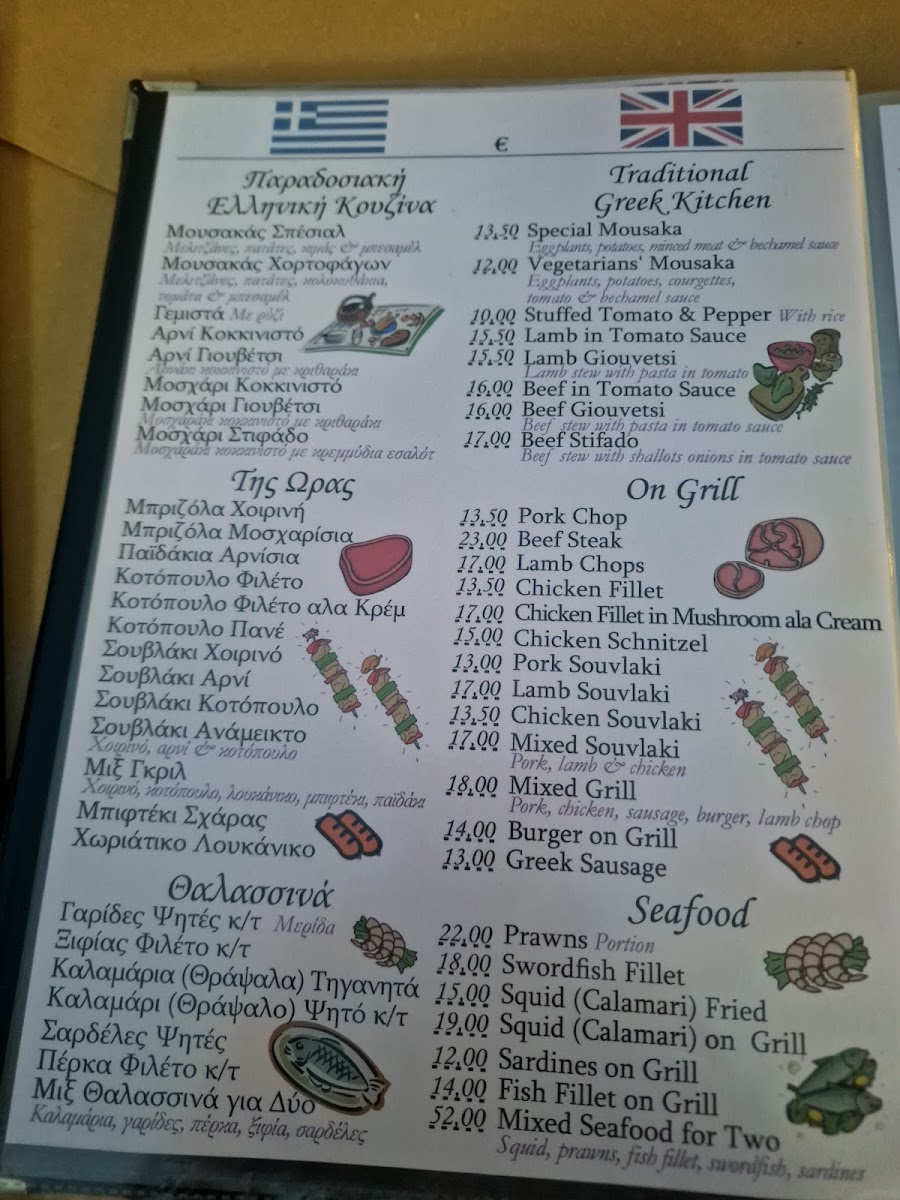 €
Παραδοσιακή
Ελληνική Κουζίνα
Traditional
Greek Kitchen
Μουσακάς Σπέσιαλ 13,50 Special Mousaka
Μελιτζάνες, πατάτες, κιμάς & μπεσαμέλ Eggplants, potatoes, minced meat & bechamel sauce
Μουσακάς Χορτοφάγων 12,00 Vegetarians' Mousaka
Μελιτζάνες, πατάτες, κολοκυθάκια, Eggplants, potatoes, courgettes,
τομάτα & μπεσαμέλ tomato & bechamel sauce
Γεμιστά Με ρύζι 10,00 Stuffed Tomato & Pepper With rice
Αρνί Κοκκινιστό 15,50 Lamb in Tomato Sauce
Αρνί Γιουβέτσι 15,50 Lamb Giouvetsi
Αρνάκι κοκκινιστό με κριθαράκι Lamb stew with pasta in tomato
Μοσχάρι Κοκκινιστό 16,00 Beef in Tomato Sauce
Μοσχάρι Γιουβέτσι 16,00 Beef Giouvetsi
Μοσχαράκι κοκκινιστό με κριθαράκι Beef stew with pasta in tomato sauce
Μοσχάρι Στιφάδο 17,00 Beef Stifado
Μοσχαράκι κοκκινιστό με κρεμμύδια εσαλότ Beef stew with shallots onions in tomato sauce
Της Ώρας On Grill
Μπριζόλα Χοιρινή 13,50 Pork Chop
Μπριζόλα Μοσχαρίσια 23,00 Beef Steak
Παϊδάκια Αρνίσια 17,00 Lamb Chops
Κοτόπουλο Φιλέτο 13,50 Chicken Fillet
Κοτόπουλο Φιλέτο αλα Κρέμ 17,00 Chicken Fillet in Mushroom ala Cream
Κοτόπουλο Πανέ 15,00 Chicken Schnitzel
Σουβλάκι Χοιρινό 13,00 Pork Souvlaki
Σουβλάκι Αρνί 17,00 Lamb Souvlaki
Σουβλάκι Κοτόπουλο 13,50 Chicken Souvlaki
Σουβλάκι Ανάμεικτο 17,00 Mixed Souvlaki
Χοιρινό, αρνί & κοτόπουλο Pork, lamb & chicken
Μιξ Γκριλ 18,00 Mixed Grill
Χοιρινό, κοτόπουλο, λουκάνικο, μπιφτέκι, παϊδάκι Pork, chicken, sausage, burger, lamb chop
Μπιφτέκι Σχάρας 14,00 Burger on Grill
Χωριάτικο Λουκάνικο 13,00 Greek Sausage
Θαλασσινά Seafood
Γαρίδες Ψητές κ/τ Μερίδα 22,00 Prawns Portion
Ξιφίας Φιλέτο κ/τ 18,00 Swordfish Fillet
Καλαμάρια (Θράψαλα) Τηγανητά 15,00 Squid (Calamari) Fried
Καλαμάρι (Θράψαλο) Ψητό κ/τ 19,00 Squid (Calamari) on Grill
Σαρδέλες Ψητές 12,00 Sardines on Grill
Πέρκα Φιλέτο κ/τ 14,00 Fish Fillet on Grill
Μιξ Θαλασσινά για Δύο 52,00 Mixed Seafood for Two
Καλαμάρια, γαρίδες, πέρκα, ξιφία, σαρδέλες Squid, prawns, fish fillet, swordfish, sardines